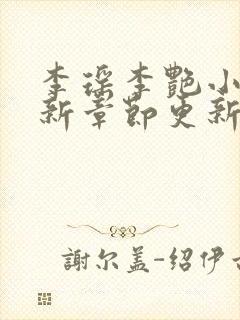 李瑶李艷小
新章節更新
謝尔盖-绍伊古